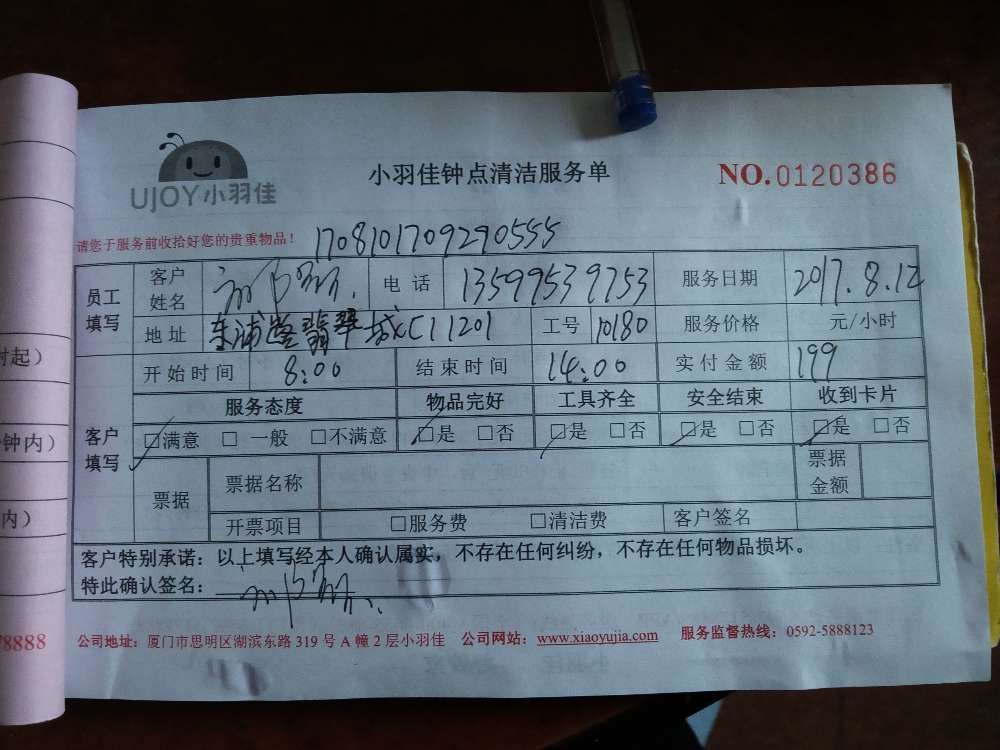 UJOY小羽佳
小羽佳钟点清洁服务单
NO.0120386
请您于服务前收拾好您的贵重物品！ 1708101709290555
员工填写 客户姓名 电话 13599539753 服务日期 2017.8.12
地址 翡翠城C11201 工号 10180 服务价格 元/小时
开始时间 8:00 结束时间 14:00 实付金额 199
客户填写 服务态度 物品完好 工具齐全 安全结束 收到卡片
☐满意 ☐一般 ☐不满意 ☐是 ☐否 ☐是 ☐否 ☐是 ☐否 ☐是 ☐否
票据 票据名称 票据金额
开票项目 ☐服务费 ☐清洁费 客户签名
客户特别承诺：以上填写经本人确认属实，不存在任何纠纷，不存在任何物品损坏。
特此确认签名：
公司地址：厦门市思明区湖滨东路319号A幢2层小羽佳 公司网站：www.xiaoyujia.com 服务监督热线：0592-5888123
时起）
钟内）
内）
78888